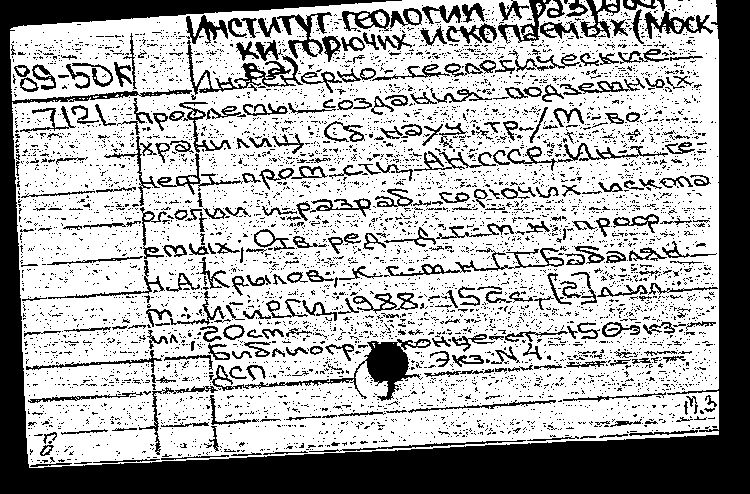 Институт геологии и разработ-
ки горючих ископаемых (Моск-
ва)
89-50К
7121
Инженерно-геологические
проблемы создания подземных
хранилищ: Сб. науч. тр./М-во
нефт. пром-сти, АН СССР, Ин-т ге-
ологии и разраб. горючих ископа
емых; Отв. ред. д. г.-м. н., проф.
Н.А. Крылов, к. г.-м. н. Г.Г. Бабалян.-
М.: ИГиРГИ, 1988.- 15 с., [2] л. ил.
ил.; 20 см.
Библиогр. в конце ст. 150 экз.
ДСП. Экз. N 4.
М.З